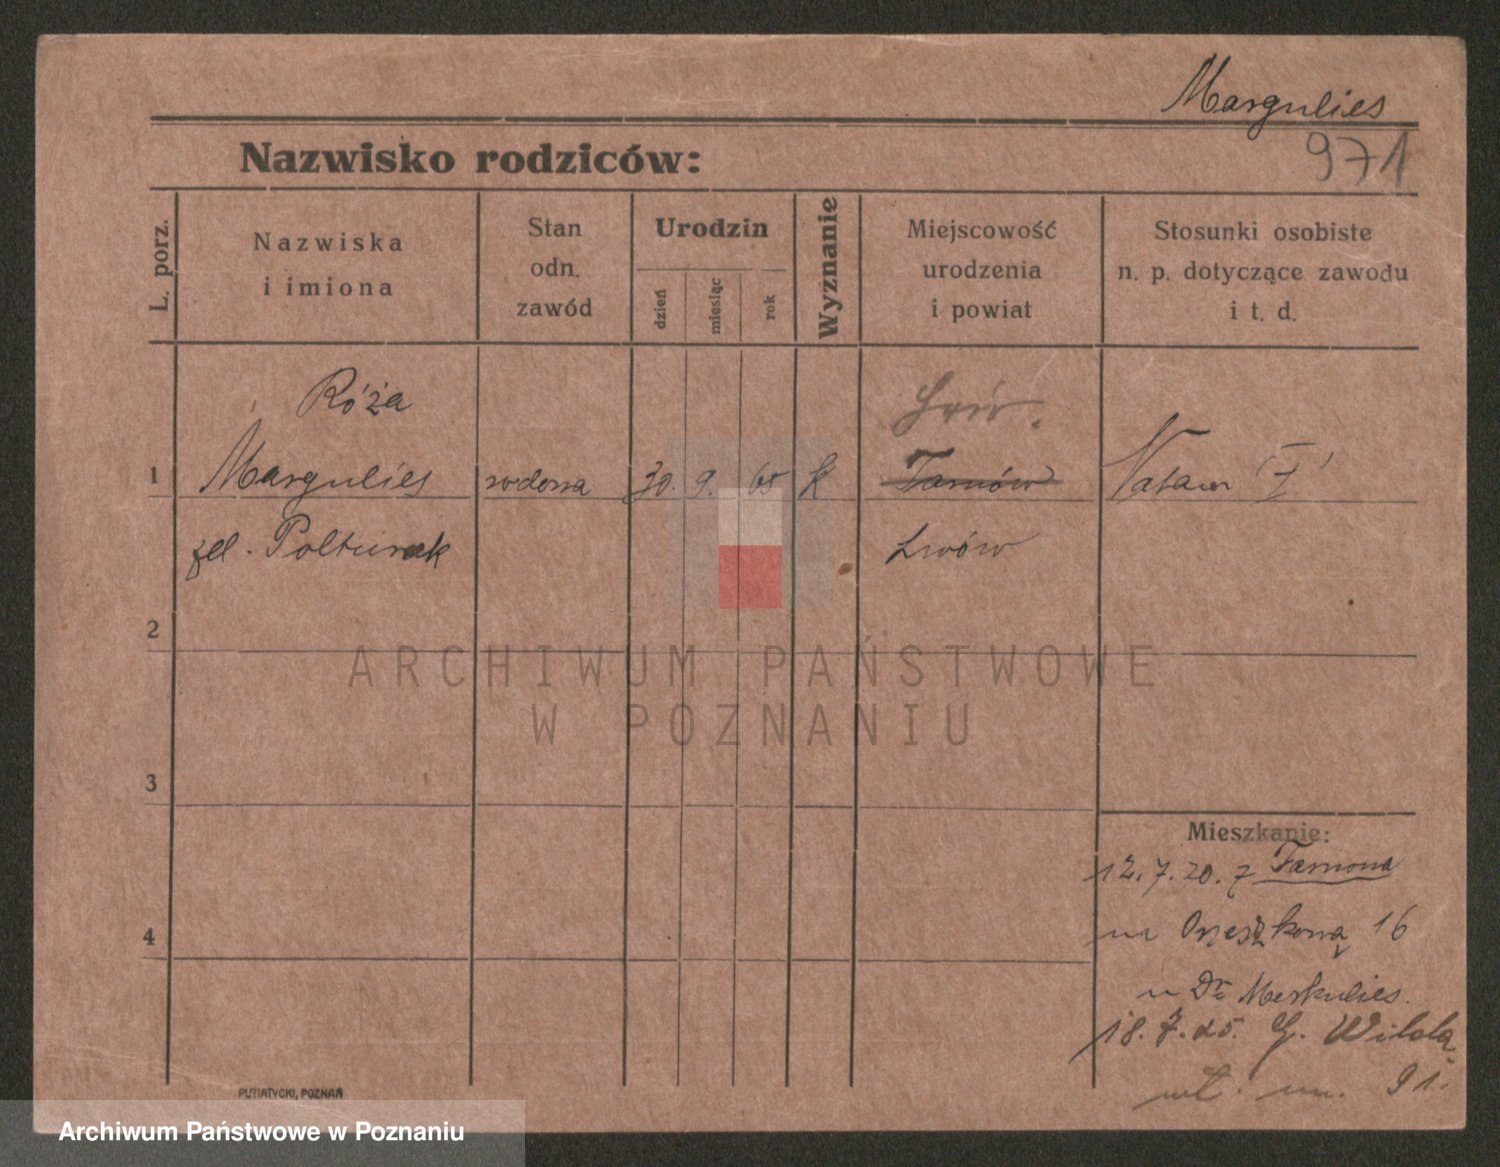 Margulies
971
Nazwisko rodziców:
L. porz.
Nazwiska
i imiona
Stan
odn.
zawód
Urodzin
dzień
miesiąc
rok
Wyznanie
Miejscowość
urodzenia
i powiat
Stosunki osobiste
n. p. dotyczące zawodu
i t. d.
Róża
Lwów.
1 Margulies wdowa 30. 9. 65 k Tarnów
żel. Polturak Lwów
2
ARCHIWUM PAŃSTWOWE
W POZNANIU
3
Mieszkanie:
12.7.20. z Tarnowa
4
na Orzeszkową 16
u Dr Merkulies.
18.7.25. G. Wilda
91.
PUTIATYCKI, POZNAŃ
Archiwum Państwowe w Poznaniu